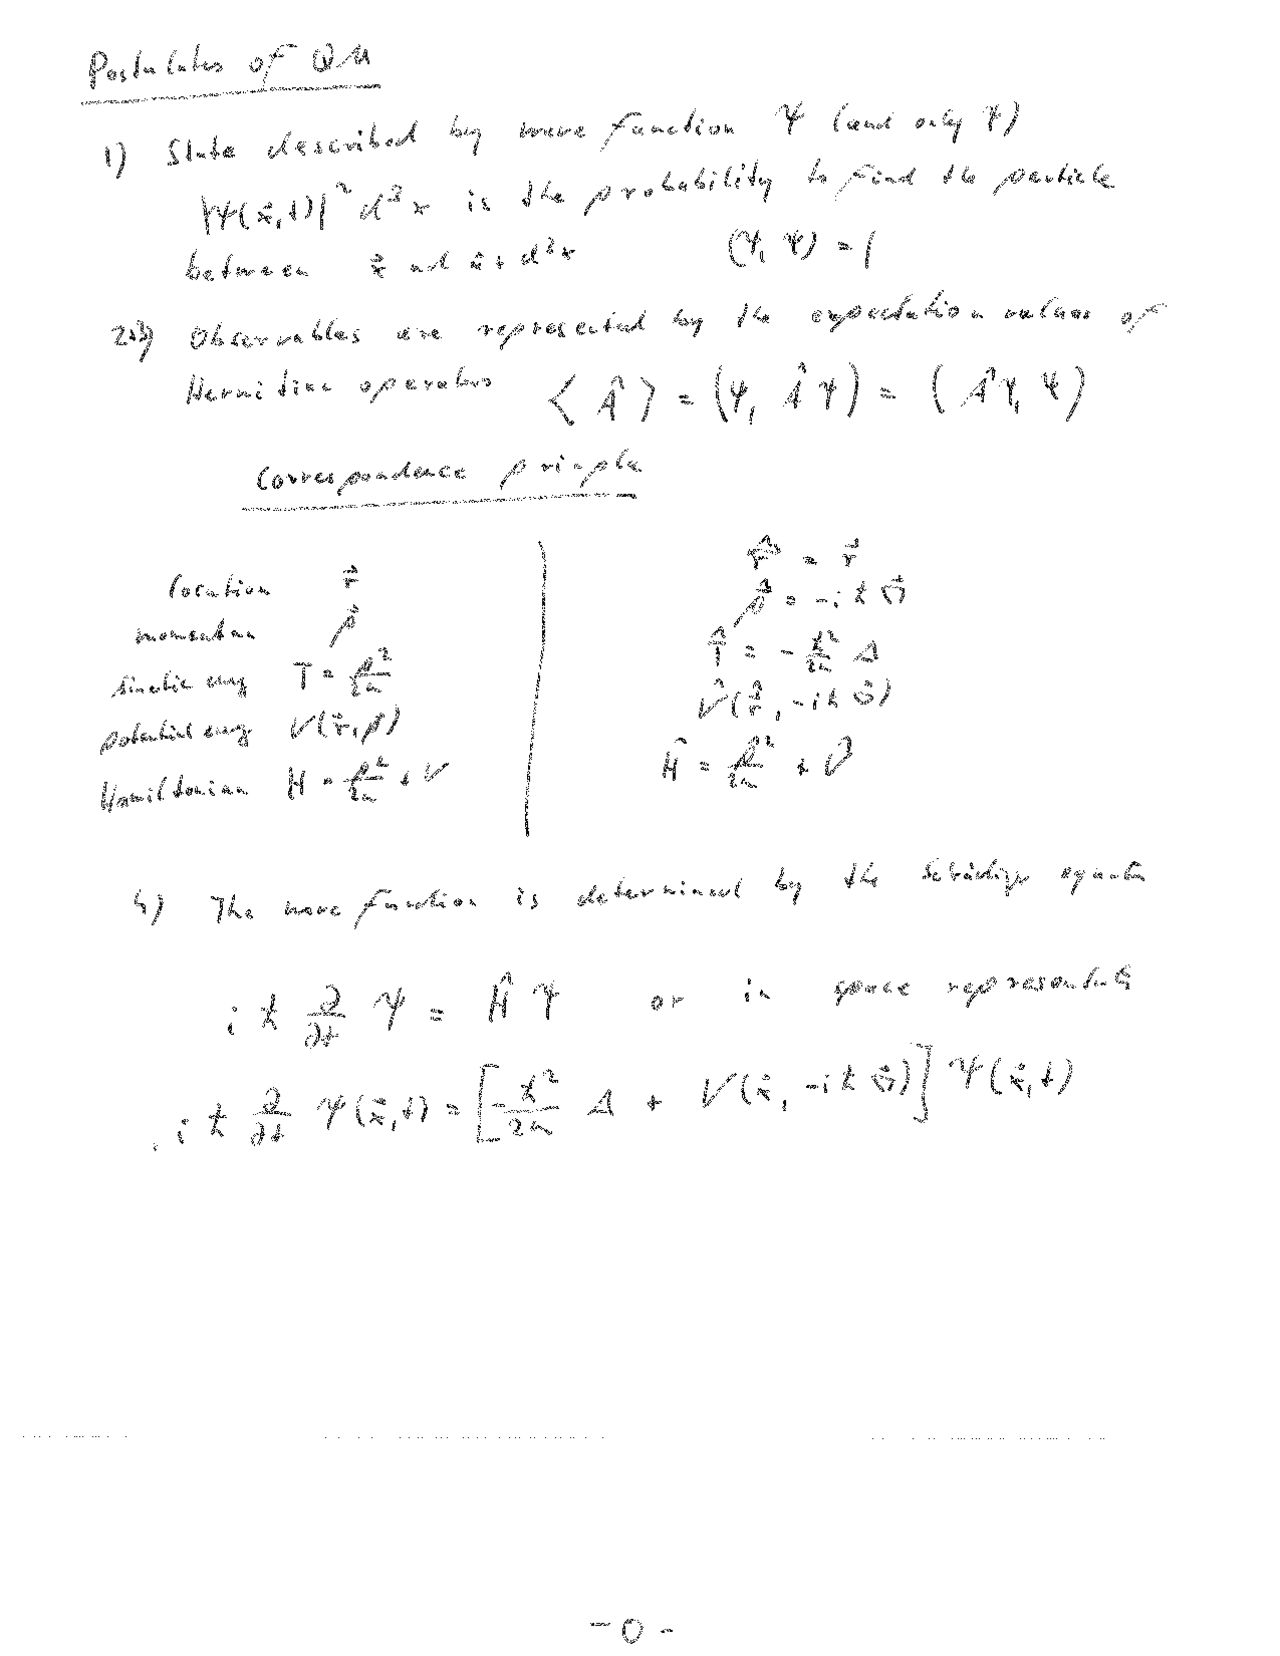 Postulates of QM
1) State described by wave function Ψ (and only Ψ)
|Ψ(x⃗,t)|² d³x is the probability to find the particle
between x⃗ and x⃗ + d³x (Ψ, Ψ) = 1
2+3) Observables are represented by the expectation values of
Hermitian operators ⟨Â⟩ = (Ψ, ÂΨ) = (ÂΨ, Ψ)
Correspondence principle
location r⃗ r⃗̂ = r⃗
momentum p⃗ p⃗̂ = -iħ∇⃗
kinetic energ T = p²/2m T̂ = -ħ²/2m Δ
potential energ V(r⃗,p⃗) V̂(r⃗̂, -iħ∇⃗)
Hamiltonian H = p²/2m + V Ĥ = p̂²/2m + V̂
4) The wave function is determined by the Schrödinger equation
iħ ∂/∂t Ψ = ĤΨ or in space representation
iħ ∂/∂t Ψ(x⃗,t) = [-ħ²/2m Δ + V(x⃗, -iħ∇⃗)] Ψ(x⃗,t)
- 0 -